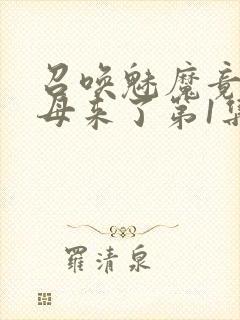 召唤魅魔竟
母来了第1集
羅清泉